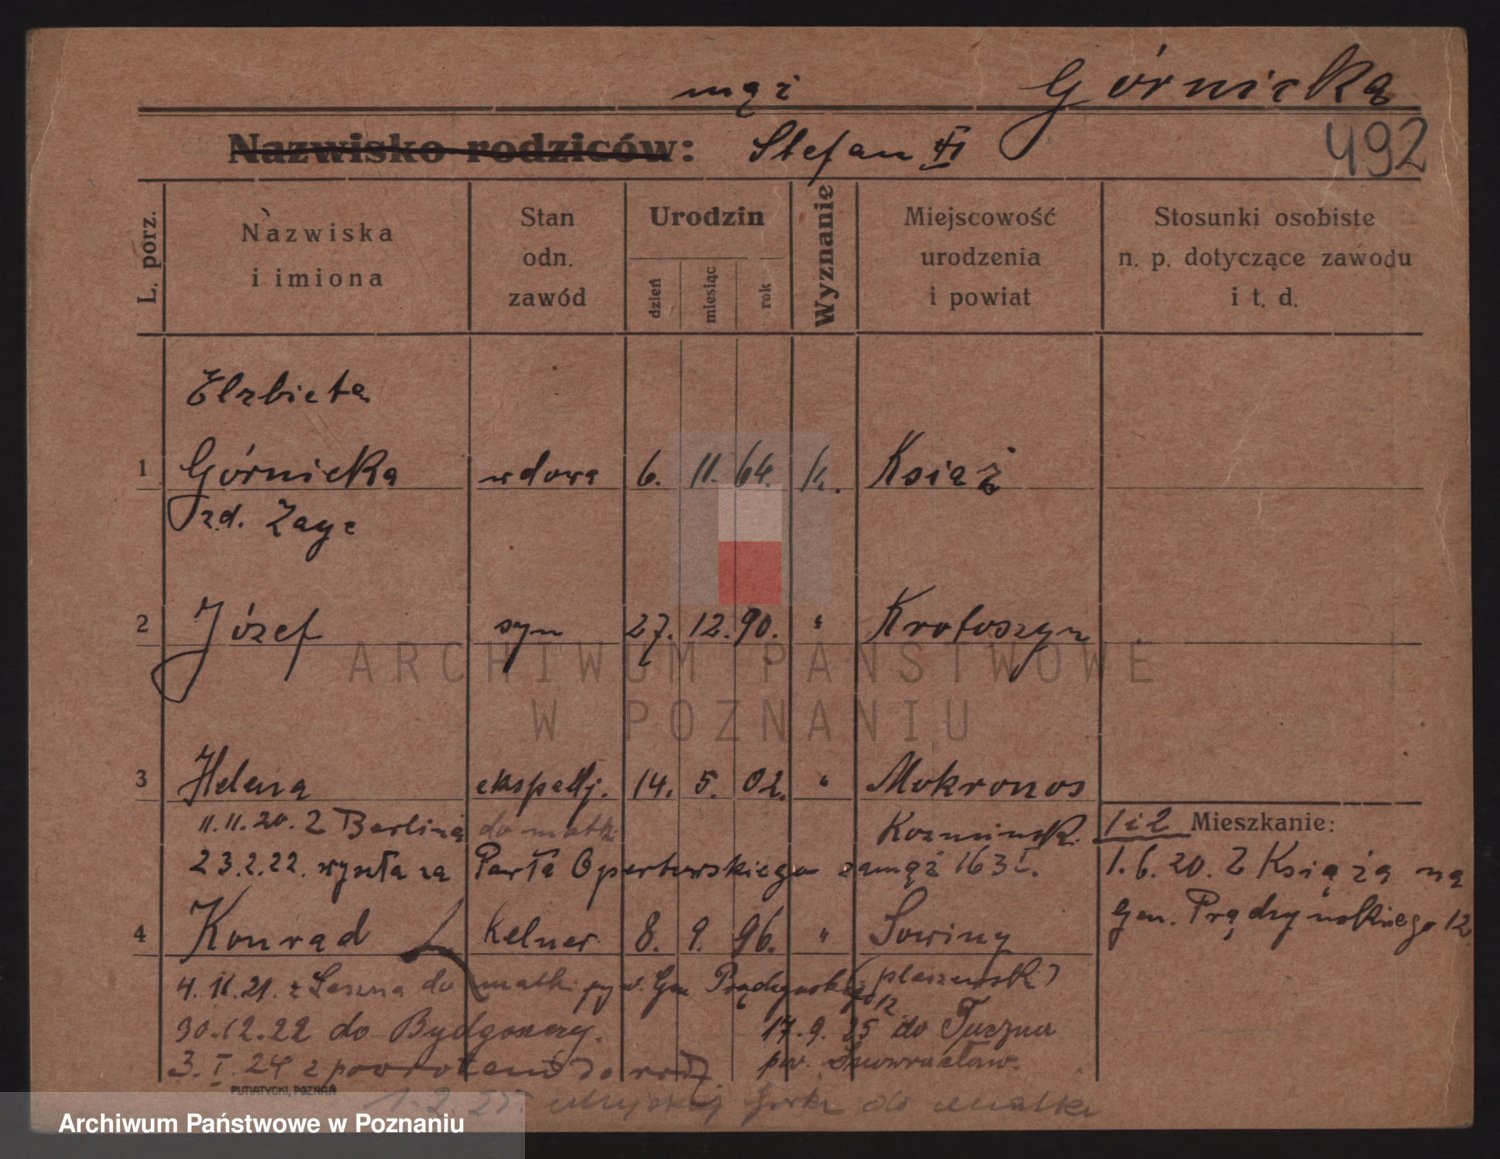 mąż Górnicka
Nazwisko rodziców: Stefan
492
L. porz.
Nazwiska
i imiona
Stan
odn.
zawód
Urodzin
dzień
miesiąc
rok
Wyznanie
Miejscowość
urodzenia
i powiat
Stosunki osobiste
n. p. dotyczące zawodu
i t. d.
Elzbieta
1 Górnicka wdowa 6. 11. 64. k. Książ
zd. Zage
2 Józef syn 27. 12. 90. " Krotoszyn
ARCHIWUM PAŃSTWOWE
W POZNANIU
3 Helena ekspedj. 14. 5. 02. " Mokronos
11.11.20. Z Berlina do matki Kozmińsk.
1 i 2 Mieszkanie:
23.2.22. wyszła za Pawła Opertowskiego zamąż 163
1.6.20. Z Książa na
gen. Prądzynskiego 12
4 Konrad kelner 8. 9. 96. " Sowiny
4.11.21. z Leszna do matki Gen Prądzynskiego 12 (pleszewsk)
30.12.22 do Bydgoszczy. 17.9.25 do Tuczna
3.I.24 z powrotem do pow. Inowrocław.
PUTIATYCKI, POZNAŃ
do matki
Archiwum Państwowe w Poznaniu